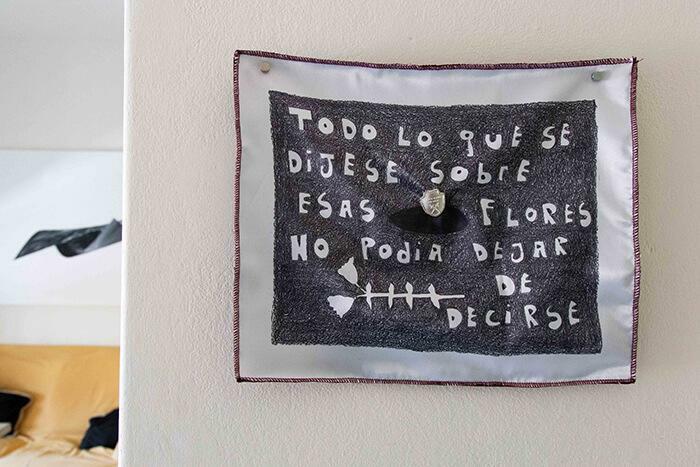 TODO LO QUE SE
DIJESE SOBRE
ESAS FLORES
NO PODIA DEJAR
DE
DECIRSE